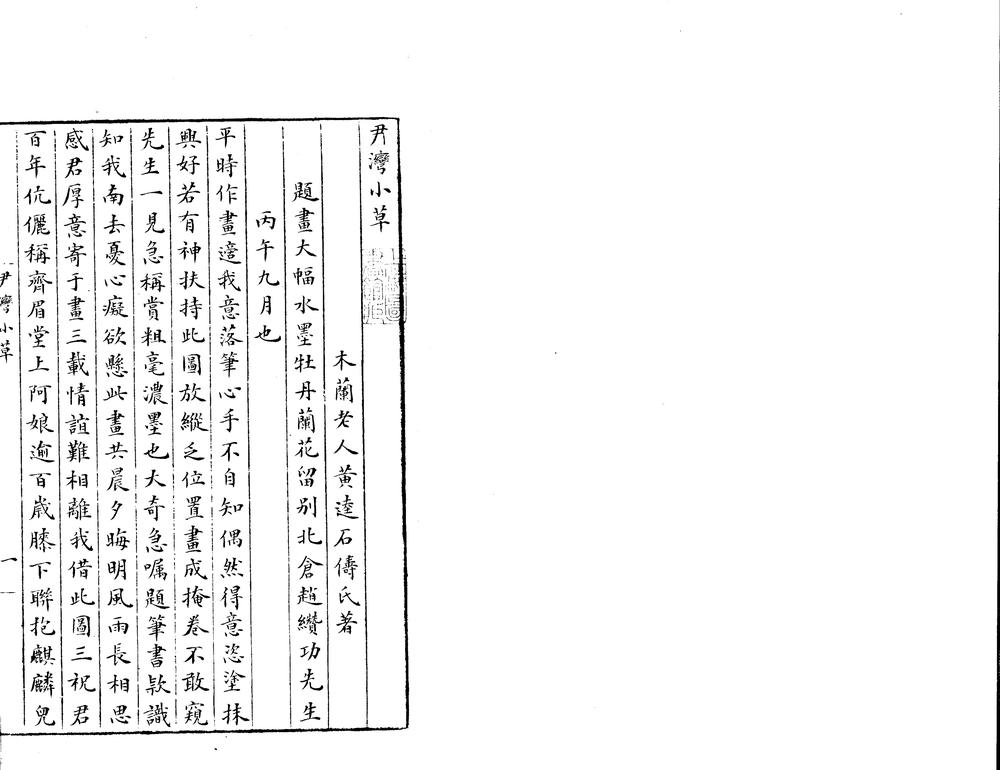 尹灣小草
木蘭老人黃逵石儔氏著
題畫大幅水墨牡丹蘭花留別北倉趙纘功先生
丙午九月也
平時作畫適我意落筆心手不自知偶然得意恣塗抹
興好若有神扶持此圖放縱乏位置畫成掩卷不敢窺
先生一見急稱賞粗毫濃墨也大奇急囑題筆書欵識
知我南去憂心癡欲懸此畫共晨夕晦明風雨長相思
感君厚意寄于畫三載情誼難相離我借此圖三祝君
百年伉儷稱齊眉堂上阿娘逾百歲膝下聯抱麒麟兒
尹灣小草
一